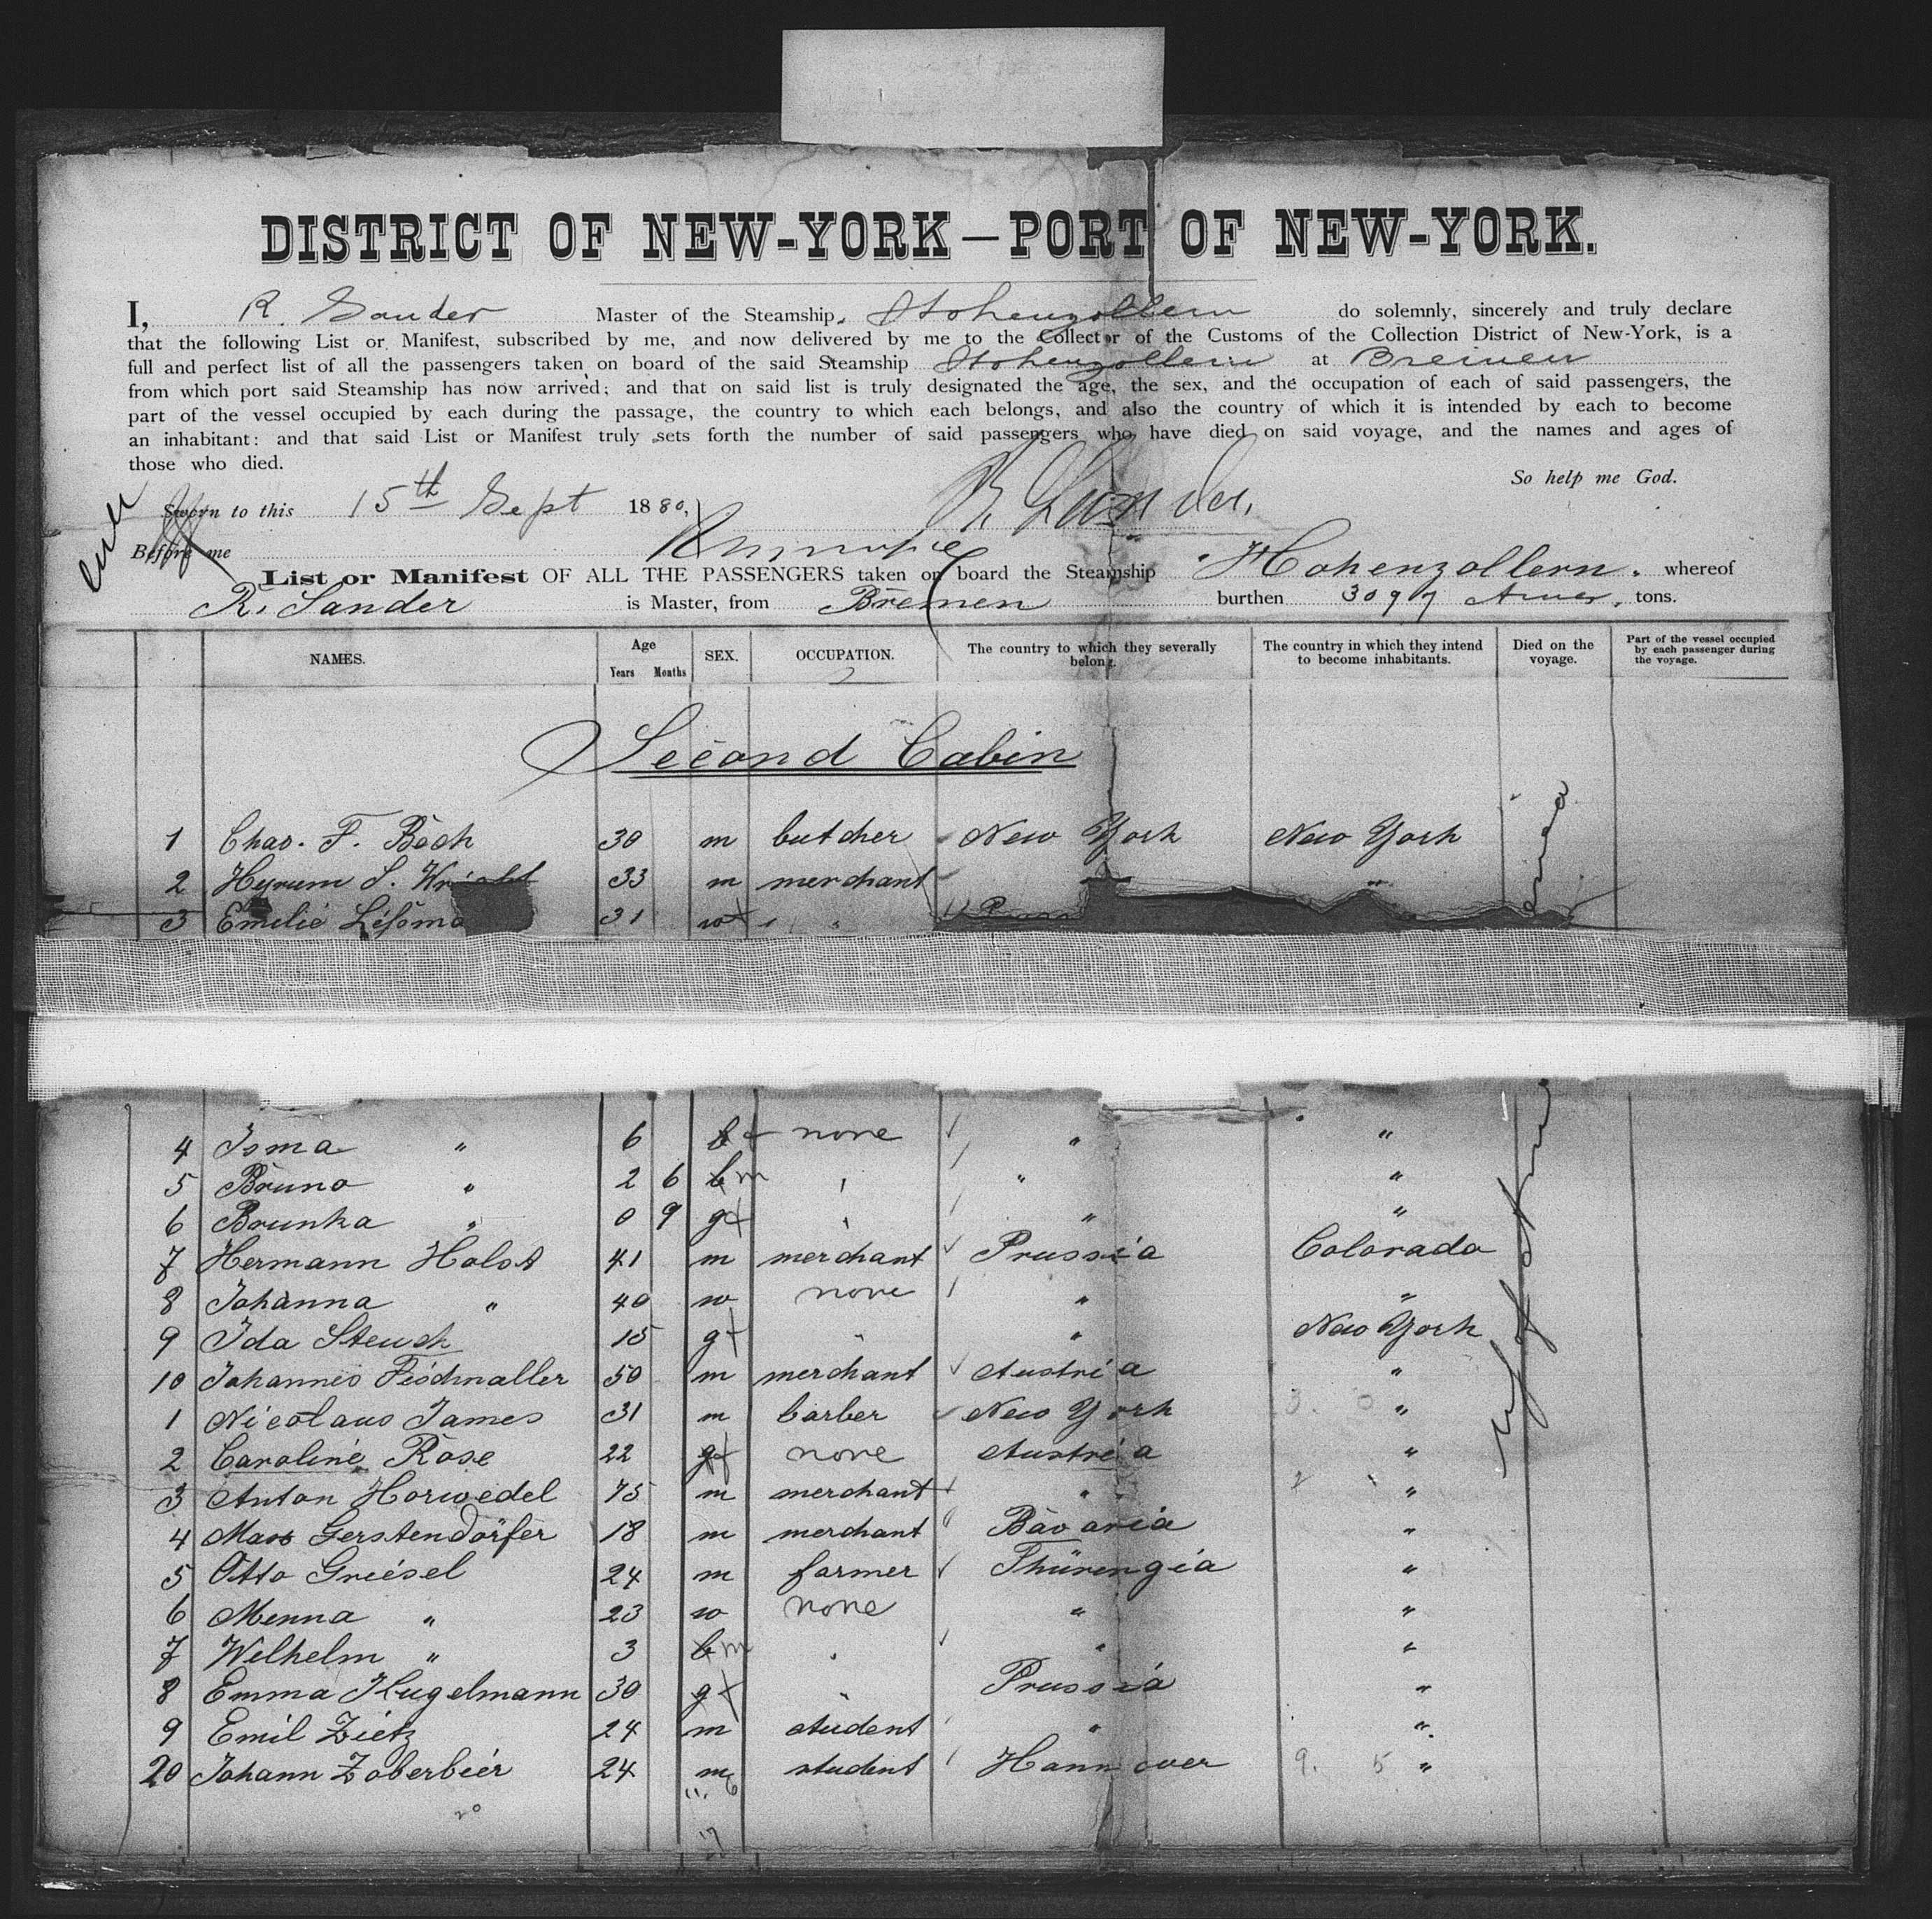 DISTRICT OF NEW-YORK—PORT OF NEW-YORK.
I, R. Sander Master of the Steamship Hohenzollern do solemnly, sincerely and truly declare
that the following List or Manifest, subscribed by me, and now delivered by me to the Collector of the Customs of the Collection District of New-York, is a
full and perfect list of all the passengers taken on board of the said Steamship Hohenzollern at Bremen
from which port said Steamship has now arrived; and that on said list is truly designated the age, the sex, and the occupation of each of said passengers, the
part of the vessel occupied by each during the passage, the country to which each belongs, and also the country of which it is intended by each to become
an inhabitant: and that said List or Manifest truly sets forth the number of said passengers who have died on said voyage, and the names and ages of
those who died.
So help me God.
Sworn to this 15th Sept 1880, R Sander.
Before me
List or Manifest OF ALL THE PASSENGERS taken on board the Steamship Hohenzollern. whereof
R. Sander is Master, from Bremen burthen 3097 tons.
NAMES. Age Years Months SEX. OCCUPATION. The country to which they severally belong. The country in which they intend to become inhabitants. Died on the voyage. Part of the vessel occupied by each passenger during the voyage.
Second Cabin
1 Chas. F. Böch 30 m butcher New York New York
2 Hyrum S. Wright 33 m merchant " "
3 Emelie 31 w "
4 Isma " 6 f none " "
5 Bruno " 2 6 b m " " "
6 Brunka " 0 9 g f " " "
7 Hermann Holst 41 m merchant Prussia Colorado
8 Johanna " 40 w none " "
9 Ida Steuch 15 g f " " New York
10 Johannes Fischnaller 50 m merchant Austria "
1 Nicolaus James 31 m barber New York "
2 Caroline Rose 22 g f none Austria "
3 Anton Horwedel 75 m merchant " "
4 Max Gerstendörfer 18 m merchant Bavaria "
5 Otto Griesel 24 m farmer Thüringia "
6 Menna " 23 w none " "
7 Welhelm " 3 b m " " "
8 Emma Hugelmann 30 g f " Prussia "
9 Emil Zietz 24 m student " "
20 Johann Zoberbier 24 m student Hannover "